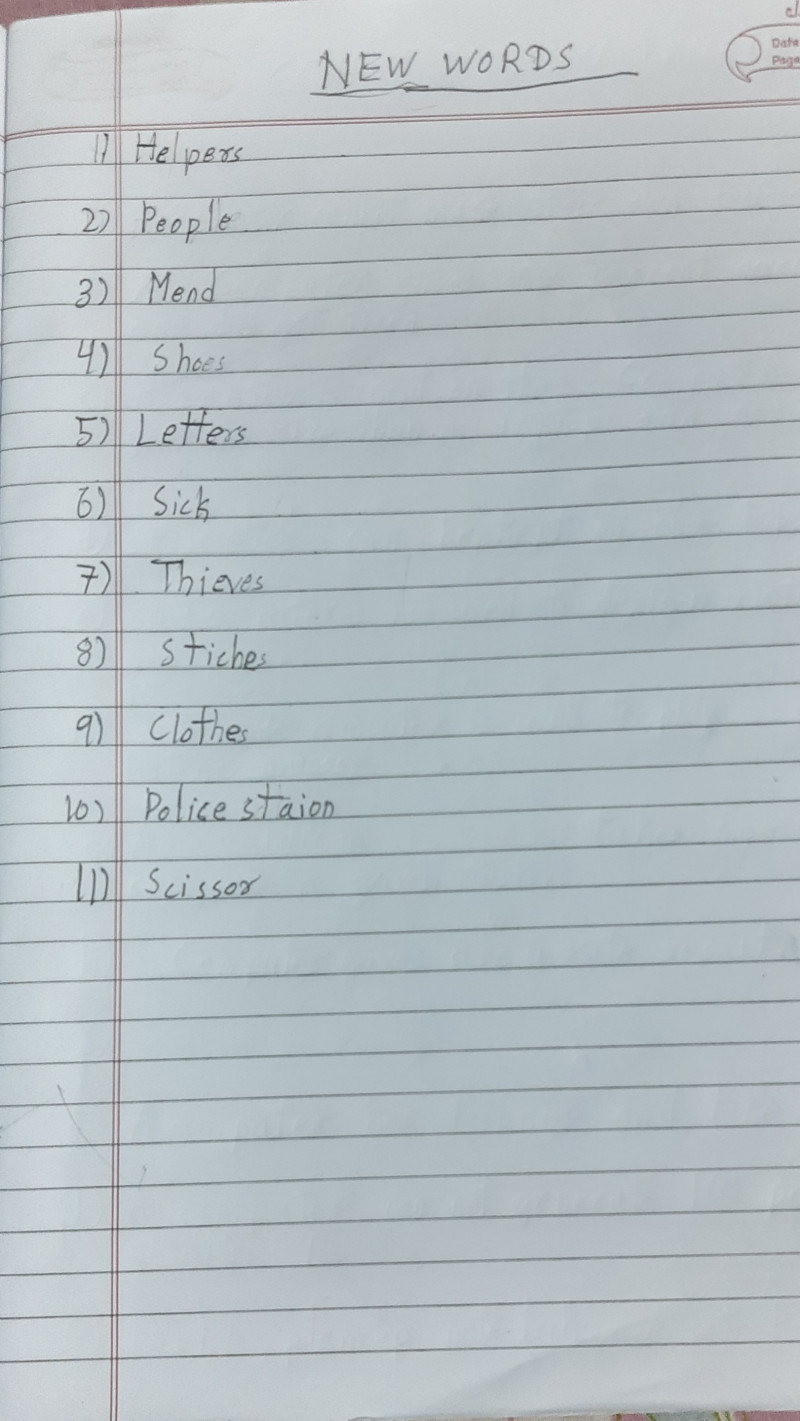 Date
Page
NEW WORDS
1) Helpers
2) People
3) Mend
4) Shoes
5) Letters
6) Sick
7) Thieves
8) Stiches
9) Clothes
10) Police staion
11) Scissor